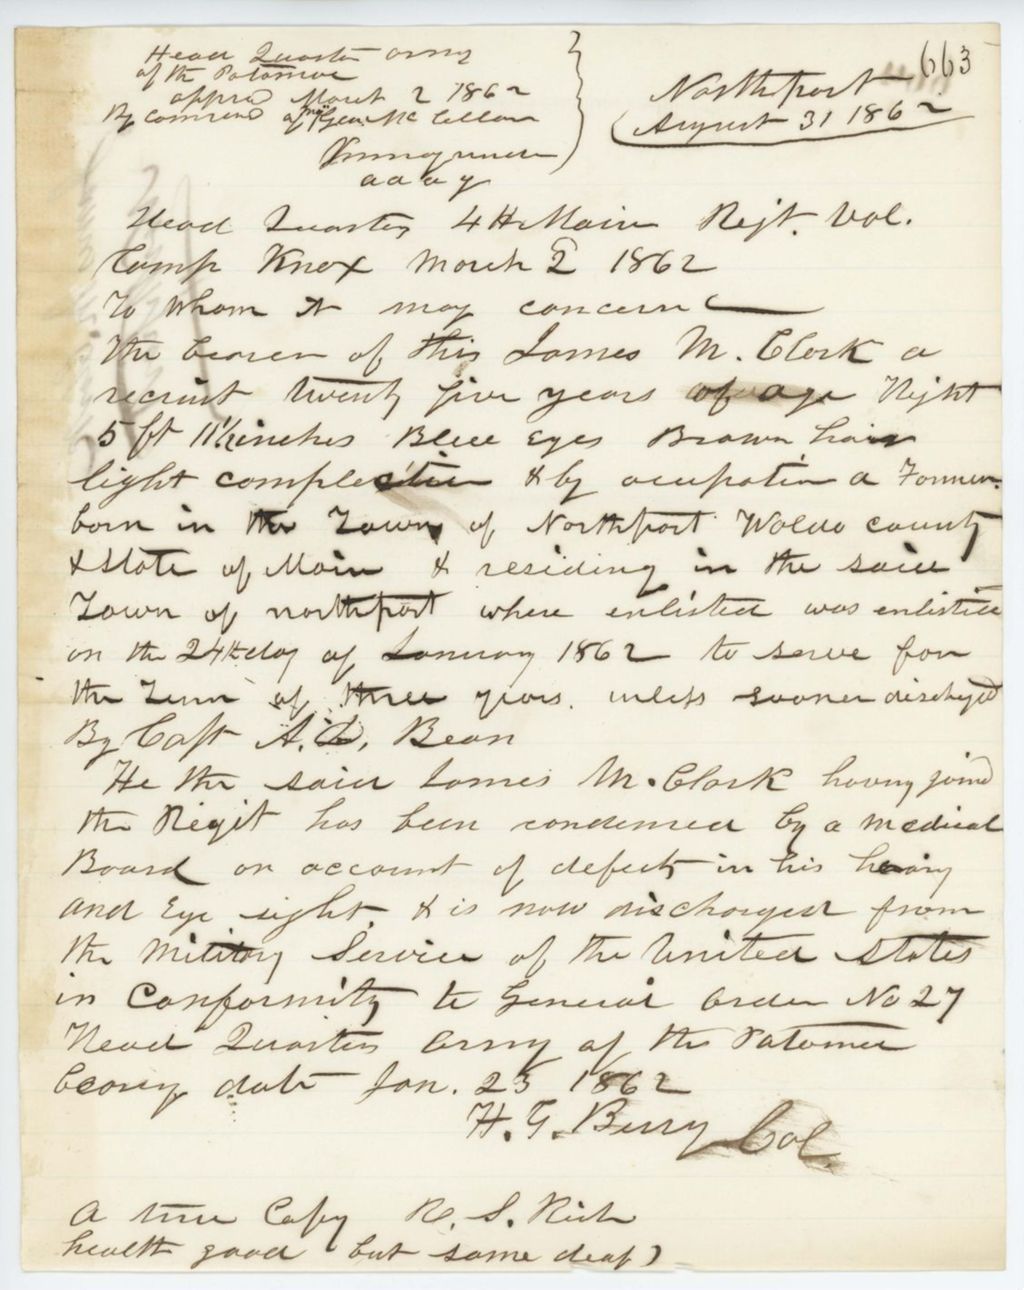 Head Quarter army
of the Potomac
appred March 2 1862
By command of Maj Gen. Mc Cellan
a a a g
663
Northport
August 31 1862
Head Quarters 4th Main Rejt. Vol.
Camp Knox March 2 1862
To Whom it may concern
the bearer of this James M. Clark a
recruit twenty five years of age Hight
5 ft 11½ inches Blue Eyes Brown hair
light complection & by ocupation a Farmer.
born in the Town of Northport Waldo county
& State of Main & residing in the said
Town of northport where enlisted was enlisted
on the 24th day of January 1862 to serve for
the Term of three years. unless sooner discharged
By Capt A. D. Bean
He the said James M. Clark having joind
the Regit has been condemed by a medical
Board on account of defects in his hearing
and Eye sight & is now discharged from
the Military Service of the United States
in Conformity to General order No 27
Head Quarters Army of the Potomac
bearing date Jan. 23 1862
H. G. Berry Col.
A true Copy R. S. Rich
health good but some deaf)